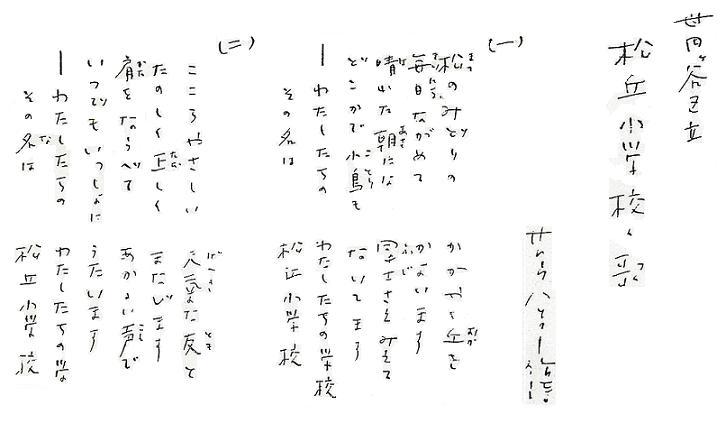 世田ヶ谷区立
松丘小学校々歌
サトウハチロー
(一)
松のみどりの かがやく丘を
毎日ながめて かよいます
晴れた朝には 富士さえみえて
どこかで小鳥も ないてます
ーわたしたちの わたしたちの学校
その名は 松丘小学校
(二)
こころやさしい 元気な友と
たのしく正しく まなびます
肩をならべて あかるい声で
いつでもいっしょに うたいます
ーわたしたちの わたしたちの学
その名は 松丘小学校